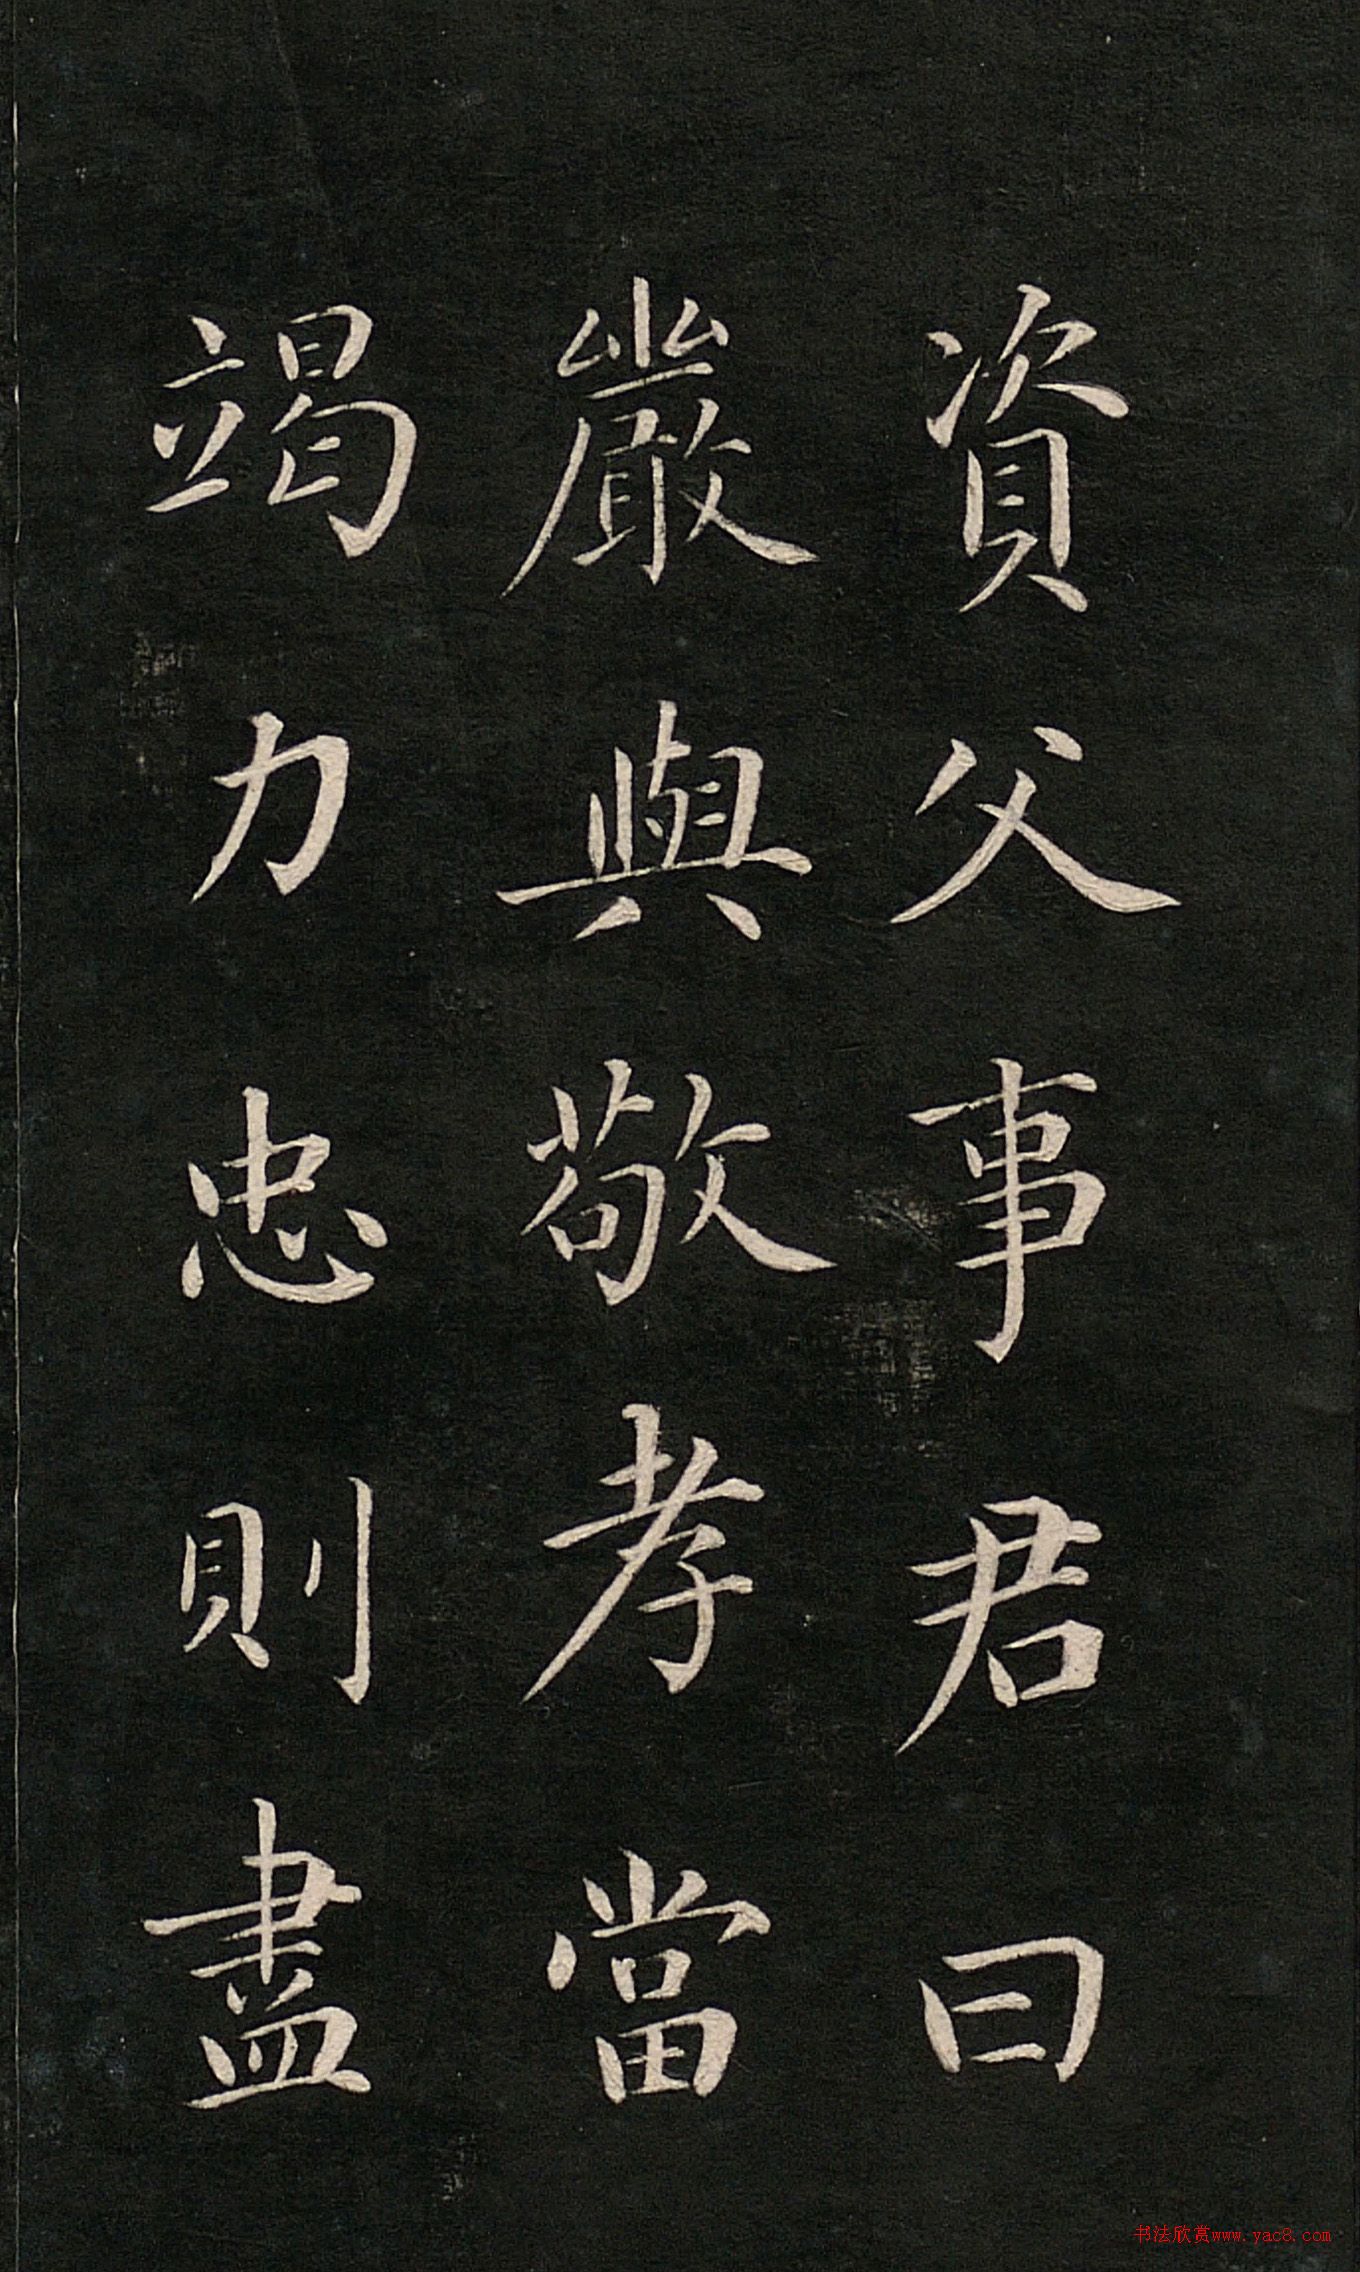 資父事君曰
嚴與敬孝當
竭力忠則盡
书法欣赏www.yac8.com